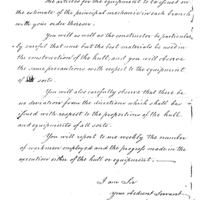 the articles for the equipment to be fixed on
the estimate of the principal mechanic in each branch
with your order thereon.
You will as well as the constructor be particular
by careful that none but the best materials be used in
the construction of the hull, and you will observe
the same precautions with respect to the equipment
of all sorts.
You will also carefully observe that there be
no deviations from the directions which shall be
given with respect to the proportions of the hull
and equipments of all sorts.
You will report to me weekly the number
of workmen employed and the progress made in the
execution either of the hull or equipment.
I am Sir
your obedient servant